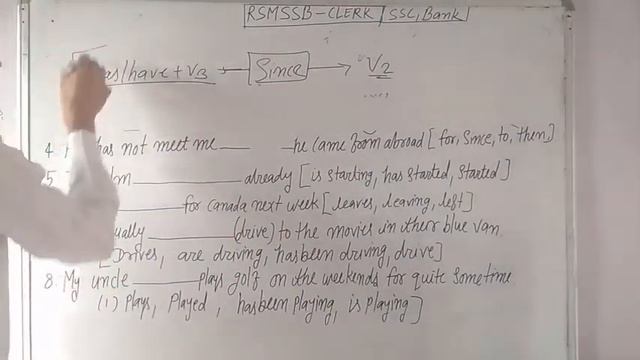 RSMSSB-CLERK SSC, Bank
has/have + V3 → Since → V2
4. has not meet me ___ he came from abroad [for, since, to, then]
5. ___ already [is starting, has started, started]
___ for canada next week [leaves, leaving, left]
___ (drive) to the movies in their blue van
[Drives, are driving, has been driving, drive]
8. My uncle ___ plays golf on the weekends for quite sometime
(1) Plays, Played, has been playing, is playing]